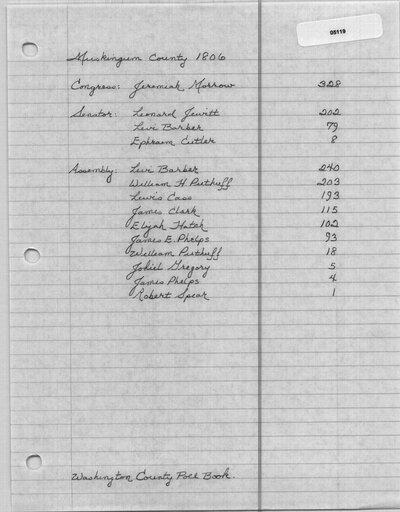 05119
Muskingum County 1806
Congress: Jeremiah Morrow 328
Senator: Leonard Jewitt 202
Levi Barber 79
Ephraim Cutler 8
Assembly: Levi Barber 240
William H. Puthuff 203
Lewis Cass 193
James Clark 115
Elijah Hatch 102
James E. Phelps 93
William Puthuff 18
Jehiel Gregory 5
James Phelps 4
Robert Spear 1
Washington County Poll Book.